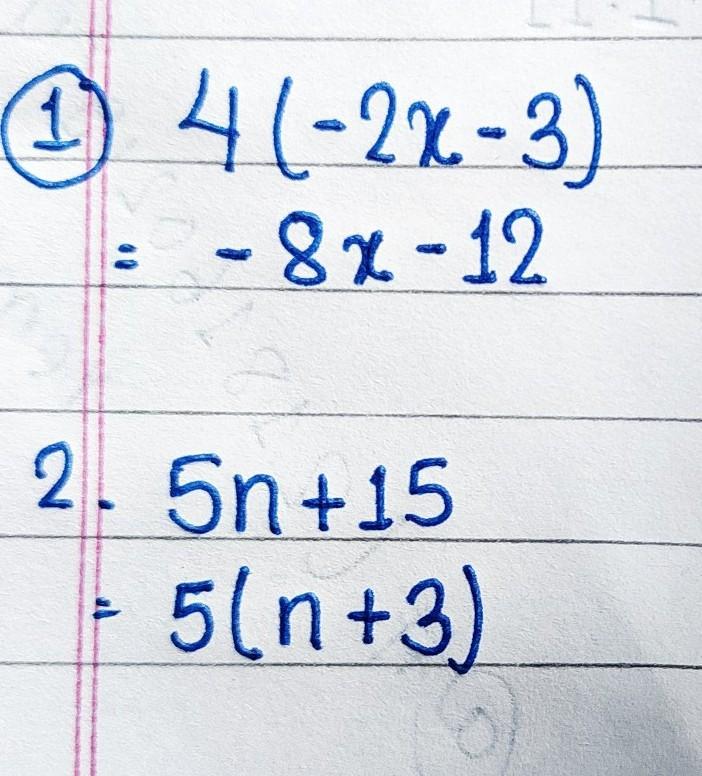 ① 4(-2x-3)
= -8x-12
2. 5n+15
= 5(n+3)